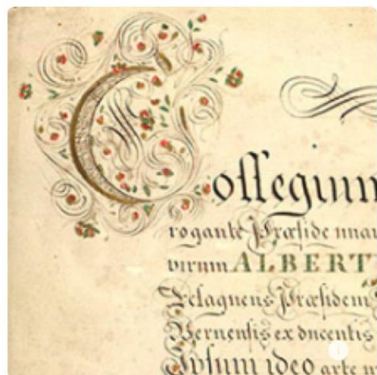 Collegium
rogante Præside unan
virum ALBERT
Præsidem
Vernensis ex ducentis
Ipsum ideo arte